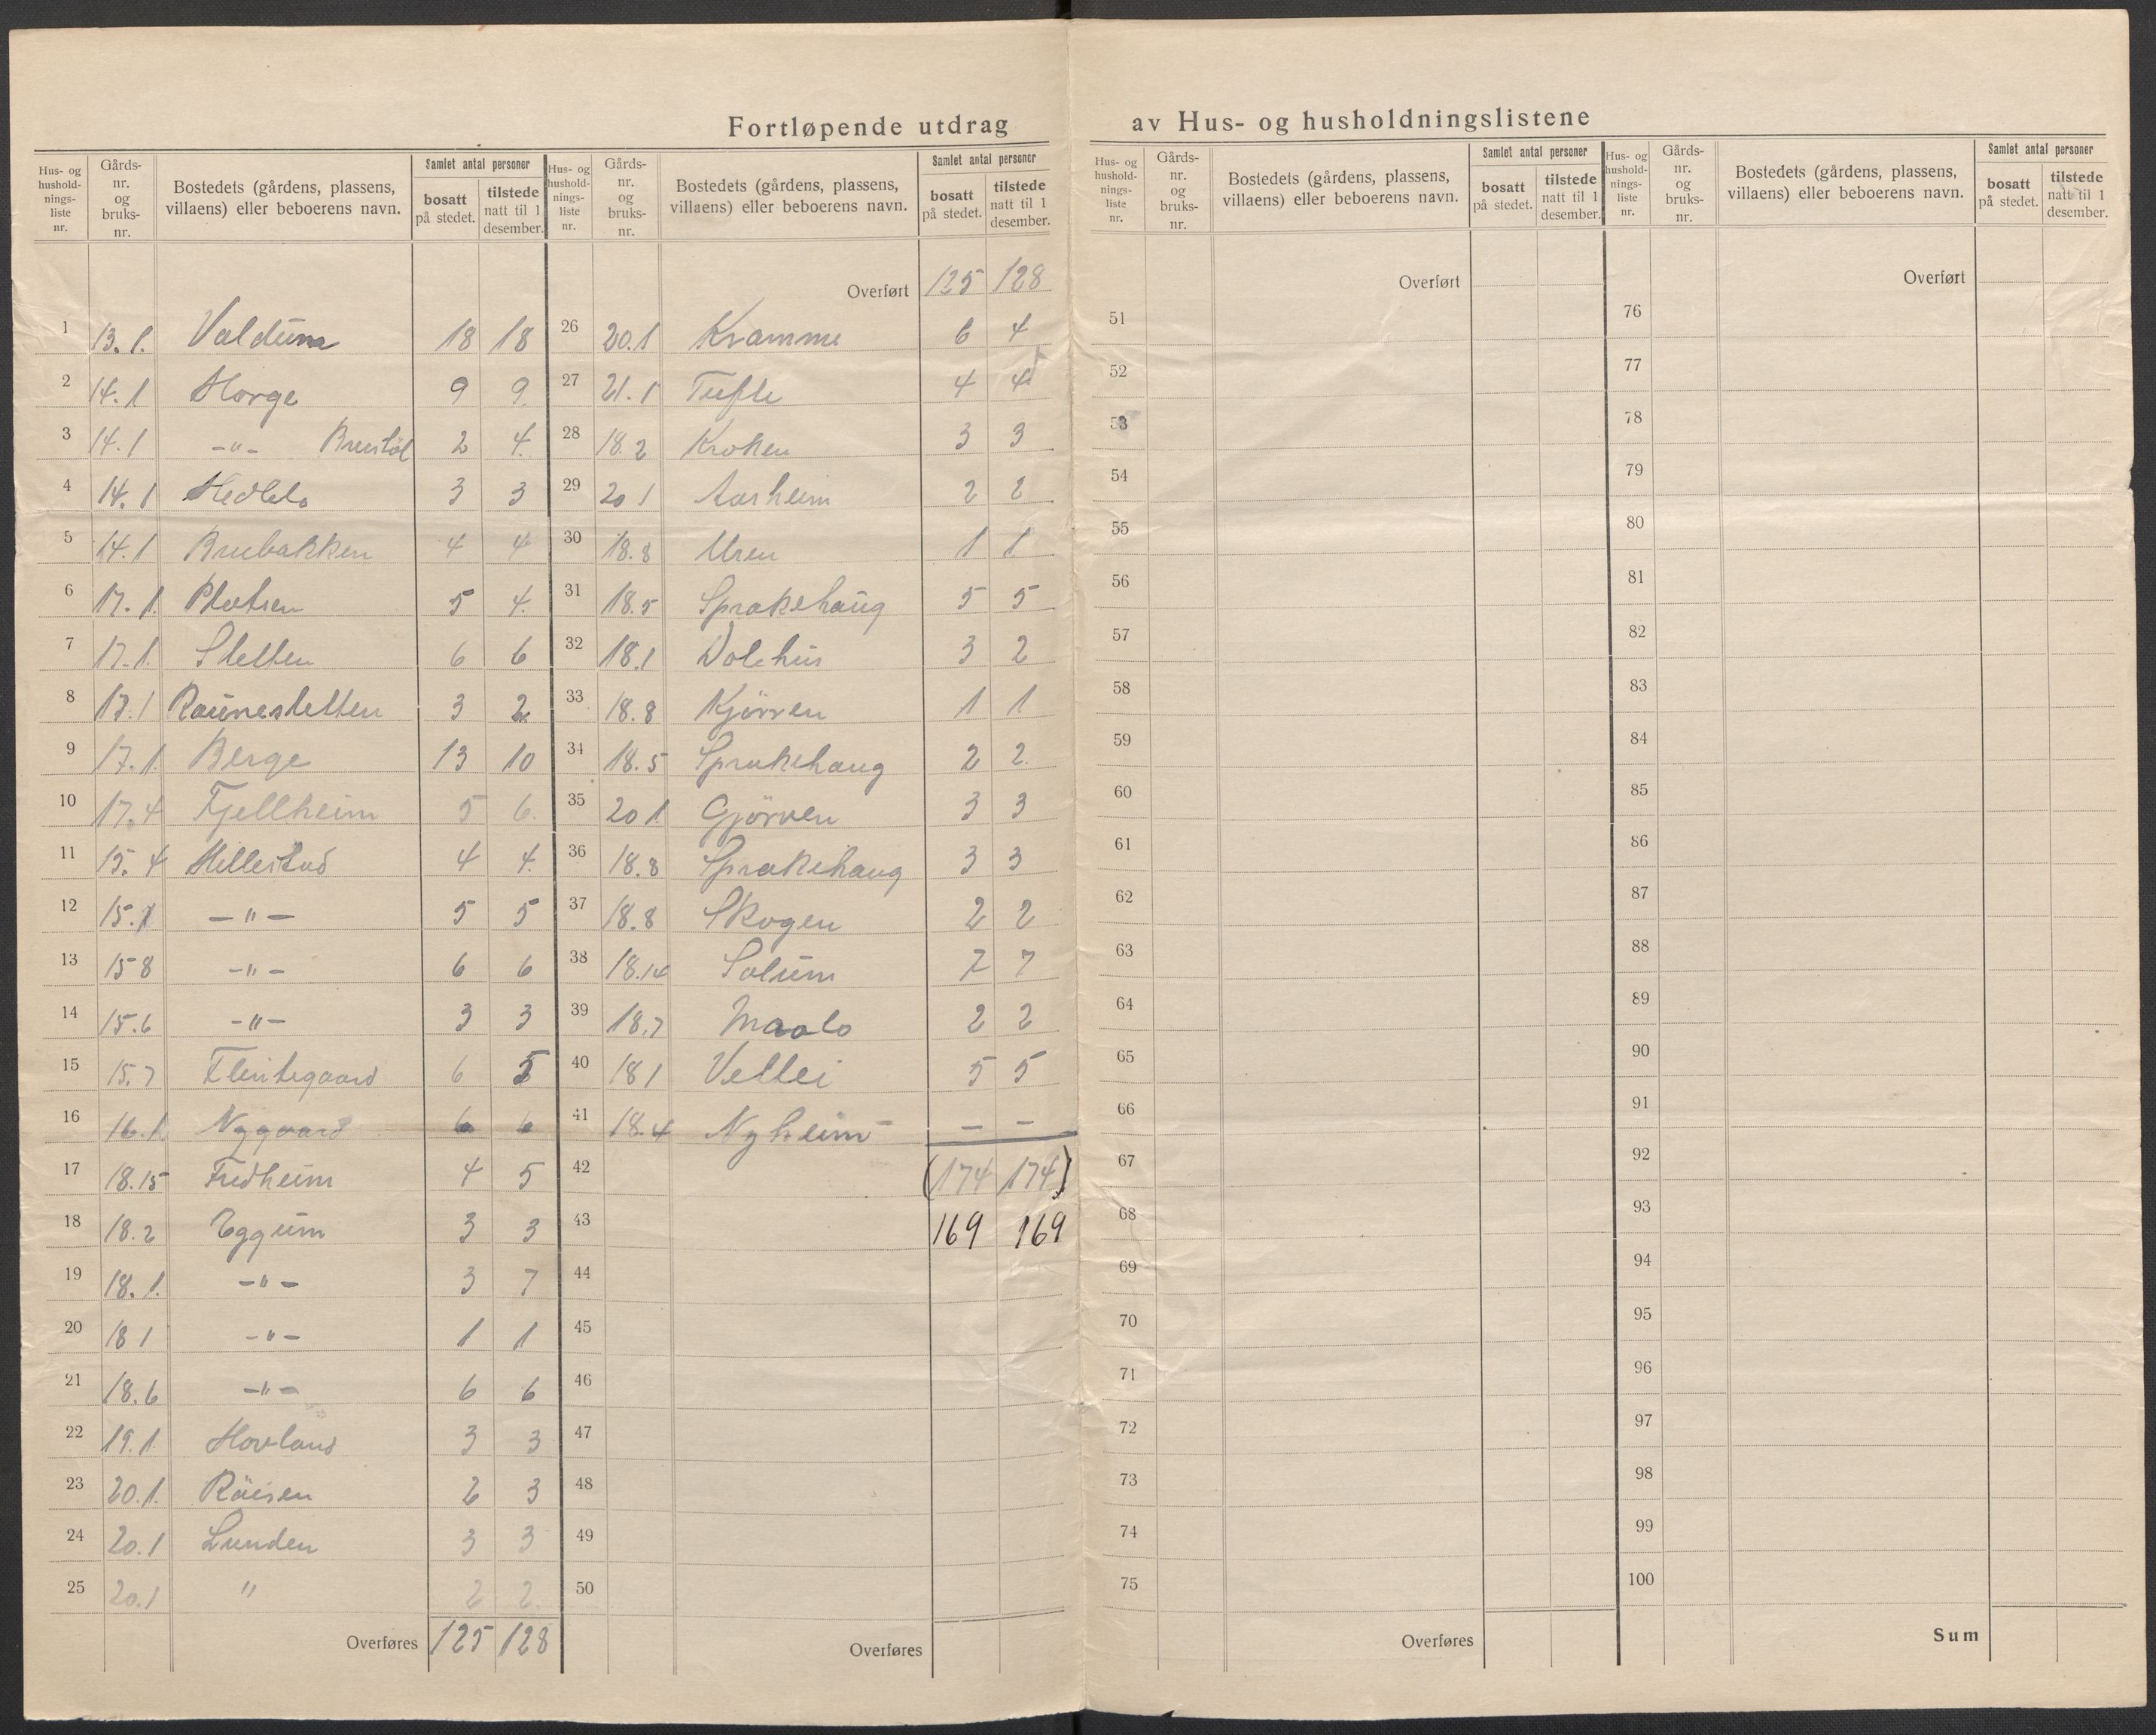 Fortløpende utdrag av Hus- og husholdningslistene
Hus- og husholdningsliste nr. | Gårdsnr. og bruksnr. | Bostedets (gårdens, plassens, villaens) eller beboerens navn. | Samlet antal personer bosatt på stedet. | tilstede natt til 1 desember.
1 13.1. Valdum 18 18
2 14.1 Horge 9 9
3 14.1 -"- Brustöl 2 4
4 14.1 Hedlelo 3 3
5 14.1 Brubakken 4 4
6 17.1. 5 4
7 17.1. Sletten 6 6
8 17.1 Raunesletten 3 2
9 17.1. Berge 13 10
10 17.4 Fjellheim 5 6
11 15.4 Hillestad 4 4
12 15.1 -"- 5 5
13 15 8 -"- 6 6
14 15.6 -"- 3 3
15 15.7 Flentegaard 6 5
16 16.1 Nygaard 6 6
17 18.15 Fredheim 4 5
18 18.2 Eggum 3 3
19 18.1. -"- 3 7
20 18 1 -"- 1 1
21 18.6 -"- 6 6
22 19.1. Hovland 3 3
23 20.1. Röisen 2 3
24 20.1 Lunden 3 3
25 20.1 " 2 2
Overføres 125 128
Hus- og husholdningsliste nr. | Gårdsnr. og bruksnr. | Bostedets (gårdens, plassens, villaens) eller beboerens navn. | Samlet antal personer bosatt på stedet. | tilstede natt til 1 desember.
Overført 125 128
26 20.1 Kramme 6 4
27 21.1 Tufte 4 4
28 18.2 Kroken 3 3
29 20 1 Aarheim 2 2
30 18.8 Uren 1 1
31 18.5 Sprakehaug 5 5
32 18.1 Dalehus 3 2
33 18.8 Kjörven 1 1
34 18.5 Sprakehaug 2 2
35 20 1. Gjörven 3 3
36 18.8 Sprakehaug 3 3
37 18.8 Skogen 2 2
38 18.14 Solum 7 7
39 18.7 Maalo 2 2
40 18 1 Vetlei 5 5
41 18.4 Nyheim - -
42 (174 174)
43 169 169
44
45
46
47
48
49
50
Overføres
Hus- og husholdningsliste nr. | Gårdsnr. og bruksnr. | Bostedets (gårdens, plassens, villaens) eller beboerens navn. | Samlet antal personer bosatt på stedet. | tilstede natt til 1 desember.
Overført
51
52
53
54
55
56
57
58
59
60
61
62
63
64
65
66
67
68
69
70
71
72
73
74
75
Overføres
Hus- og husholdningsliste nr. | Gårdsnr. og bruksnr. | Bostedets (gårdens, plassens, villaens) eller beboerens navn. | Samlet antal personer bosatt på stedet. | tilstede natt til 1 desember.
Overført
76
77
78
79
80
81
82
83
84
85
86
87
88
89
90
91
92
93
94
95
96
97
98
99
100
Sum